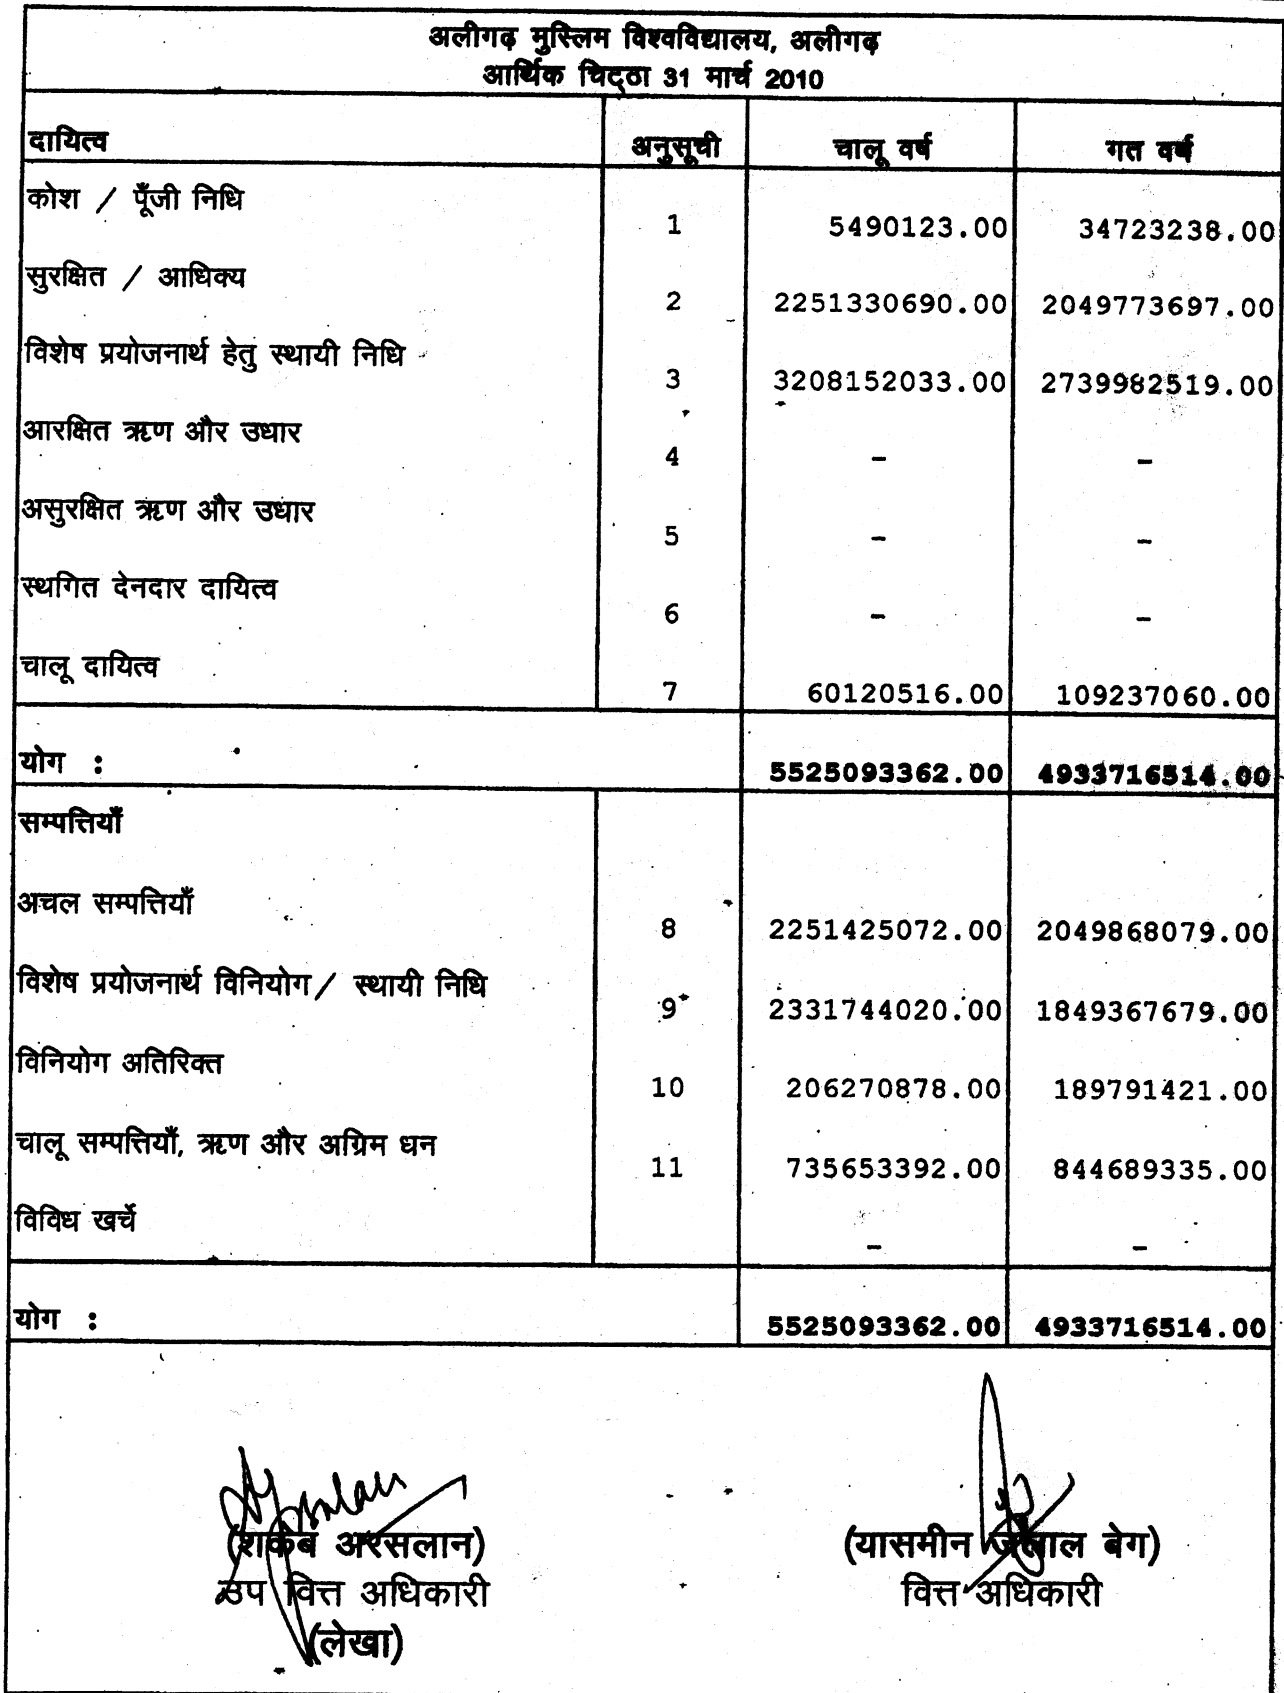 अलीगढ़ मुस्लिम विश्वविद्यालय, अलीगढ़
आर्थिक चिट्ठा 31 मार्च 2010
दायित्व अनुसूची चालू वर्ष गत वर्ष
कोश / पूँजी निधि 1 5490123.00 34723238.00
सुरक्षित / आधिक्य 2 2251330690.00 2049773697.00
विशेष प्रयोजनार्थ हेतु स्थायी निधि 3 3208152033.00 2739982519.00
आरक्षित ऋण और उधार 4 - -
असुरक्षित ऋण और उधार 5 - -
स्थगित देनदार दायित्व 6 - -
चालू दायित्व 7 60120516.00 109237060.00
योग : 5525093362.00 4933716514.00
सम्पत्तियाँ
अचल सम्पत्तियाँ 8 2251425072.00 2049868079.00
विशेष प्रयोजनार्थ विनियोग/ स्थायी निधि 9 2331744020.00 1849367679.00
विनियोग अतिरिक्त 10 206270878.00 189791421.00
चालू सम्पत्तियाँ, ऋण और अग्रिम धन 11 735653392.00 844689335.00
विविध खर्चे - -
योग : 5525093362.00 4933716514.00
(शकेब अरसलान) (यासमीन जलाल बेग)
उप वित्त अधिकारी वित्त अधिकारी
(लेखा)